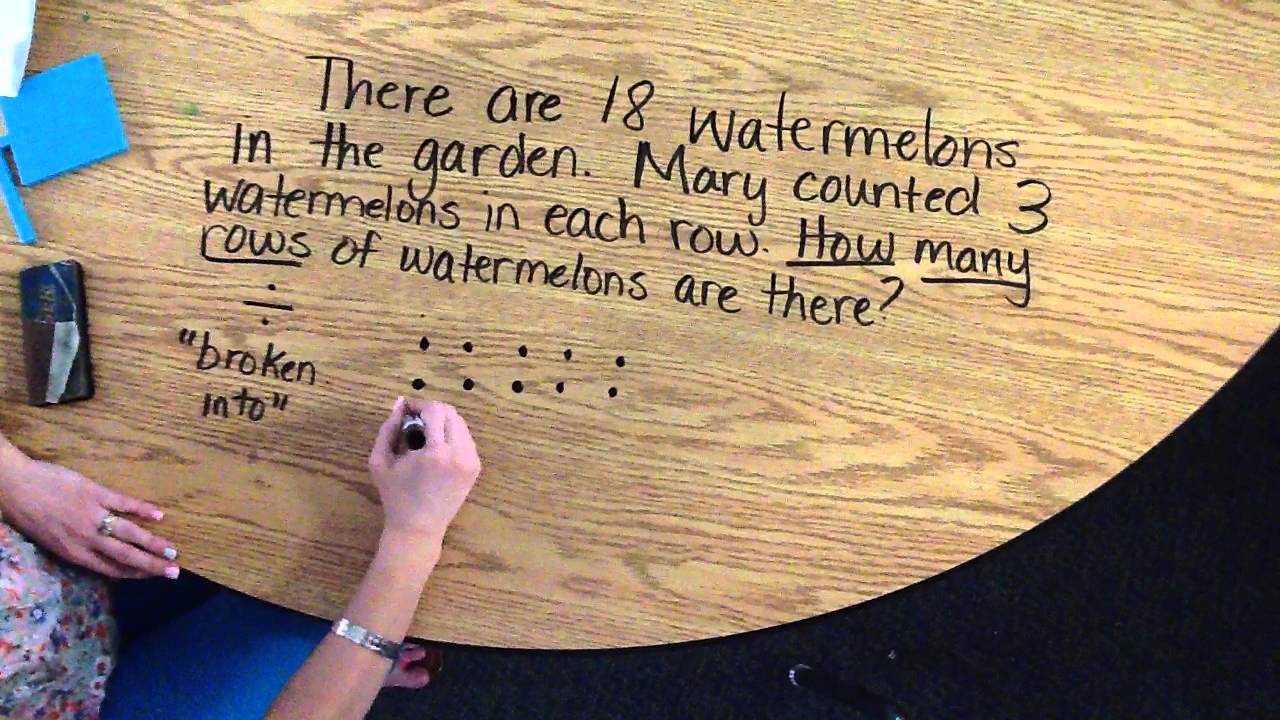 There are 18 watermelons
in the garden. Mary counted 3
watermelons in each row. How many
rows of watermelons are there?
÷
"broken
into"